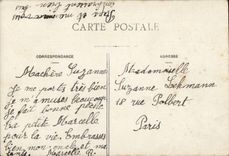 CARTE POSTALE
CORRESPONDANCE
ADRESSE
Ma chère Suzanne
Je me porte très bien
je m'amuse beaucoup
fait bonne pêche
ta petite Marcelle
pour la vie. Embrasses
bien mon oncle et ma
tante. Marcelle
Mademoiselle
Suzanne Lehmann
18 rue Polbert
Paris